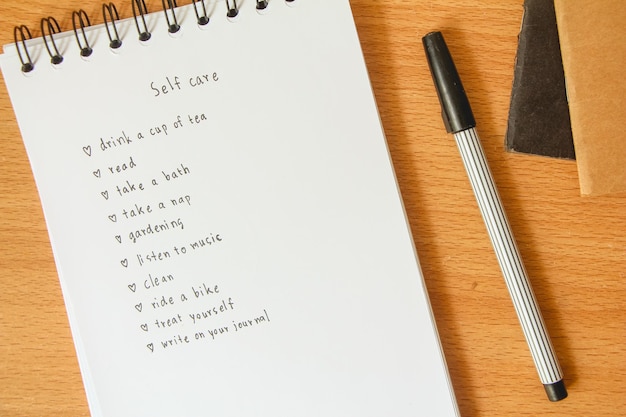 Self care
♡ drink a cup of tea
♡ read
♡ take a bath
♡ take a nap
♡ gardening
♡ listen to music
♡ clean
♡ ride a bike
♡ treat yourself
♡ write on your journal